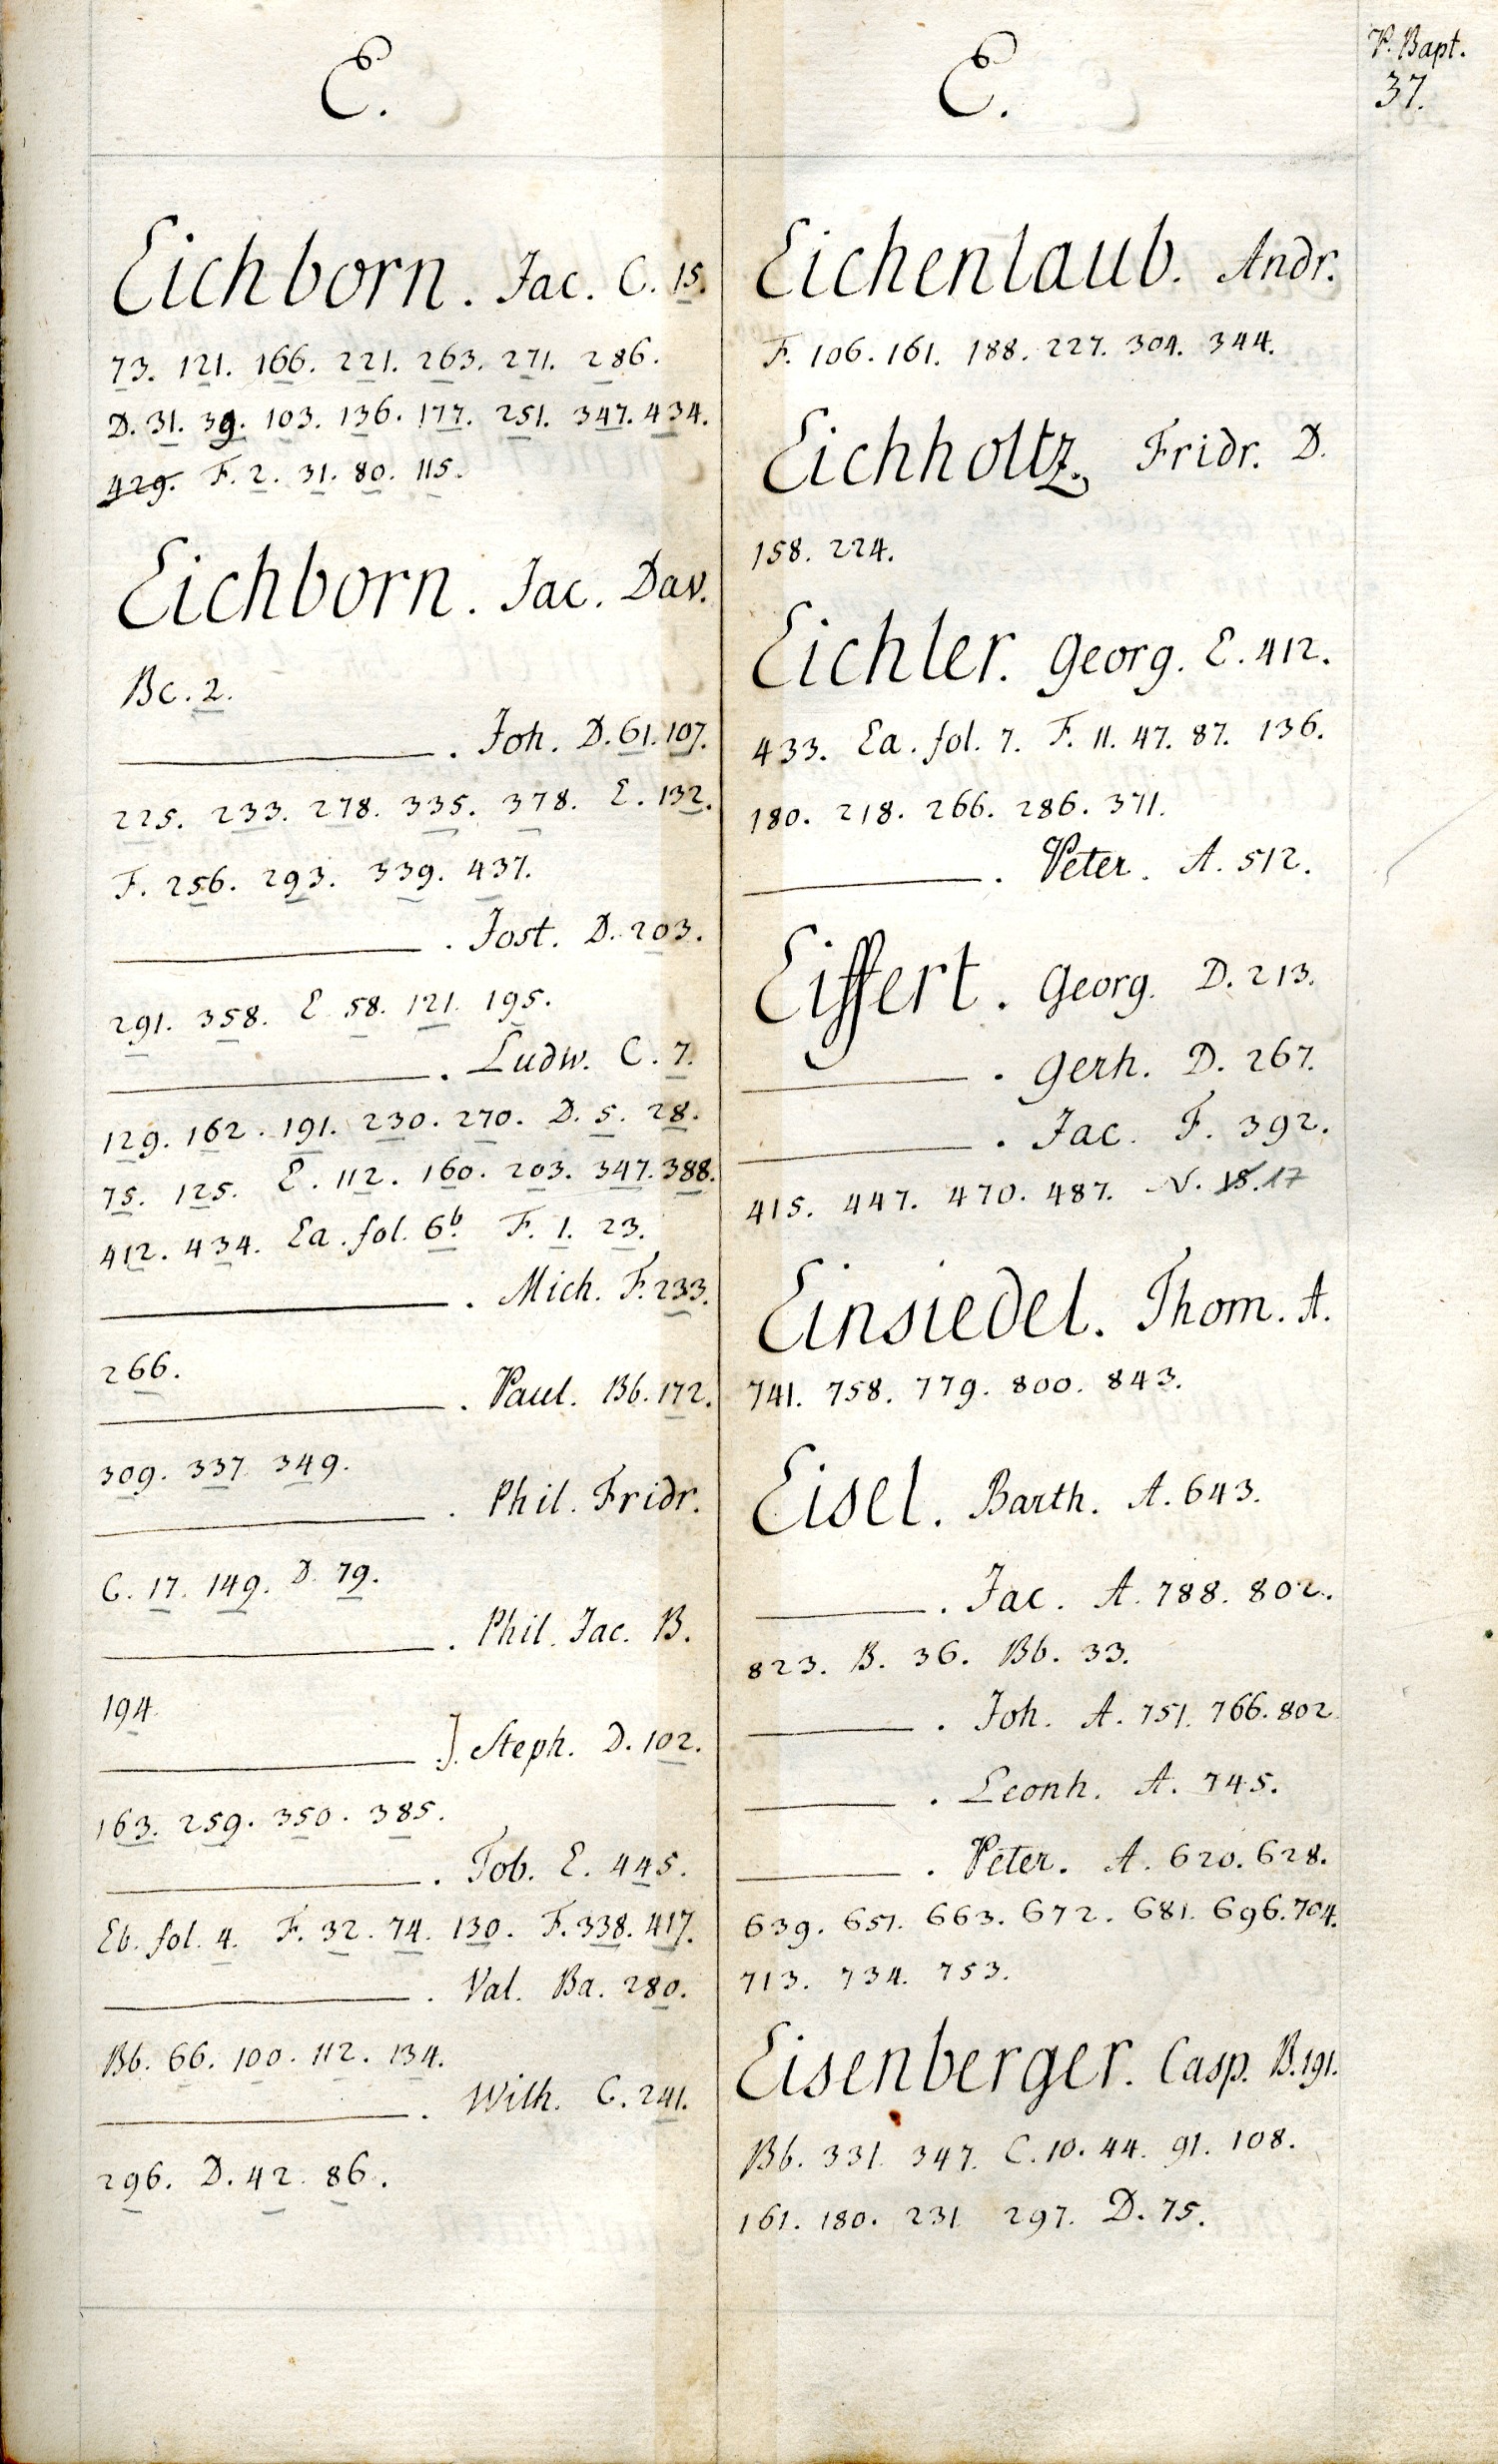 E.
Eichborn. Jac. C. 15.
73. 121. 166. 221. 263. 271. 286.
D. 31. 39. 103. 136. 177. 251. 347. 434.
429. F. 2. 31. 80. 115.
Eichborn. Jac. Dav.
Bc. 2.
———. Joh. D. 61. 107.
225. 233. 278. 335. 378. E. 132.
F. 256. 293. 339. 437.
———. Jost. D. 203.
291. 358. E 58. 121. 195.
———. Ludw. C. 7.
129. 162. 191. 230. 270. D. 5. 28.
75. 125. E. 112. 160. 203. 347. 388.
412. 434. Ea. fol. 6b. F. 1. 23.
———. Mich. F. 233.
266.
———. Paul. Bb. 172.
309. 337. 349.
———. Phil. Fridr.
C. 17. 149. D. 79.
———. Phil. Jac. B.
194.
———. J. Steph. D. 102.
163. 259. 350. 385.
———. Tob. E. 445.
Eb. fol. 4. F. 32. 74. 130. F. 338. 417.
———. Val. Ba. 280.
Bb. 66. 100. 112. 134.
———. Wilh. C. 241.
296. D. 42. 86.
E.
Eichenlaub. Andr.
F. 106. 161. 188. 227. 304. 344.
Eichholtz. Fridr. D.
158. 224.
Eichler. Georg. E. 412.
433. Ea. fol. 7. F. 11. 47. 87. 136.
180. 218. 266. 286. 371.
———. Peter. A. 512.
Eiffert. Georg. D. 213.
———. Gerh. D. 267.
———. Jac. F. 392.
415. 447. 470. 487. N. 18. 17
Einsiedel. Thom. A.
741. 758. 779. 800. 843.
Eisel. Barth. A. 643.
———. Jac. A. 788. 802.
823. B. 36. Bb. 33.
———. Joh. A. 751. 766. 802
———. Leonh. A. 745.
———. Peter. A. 620. 628.
639. 651. 663. 672. 681. 696. 704.
713. 734. 753.
Eisenberger. Casp. B. 191.
Bb. 331. 347. C. 10. 44. 91. 108.
161. 180. 231 297. D. 75.
P. Bapt.
37.